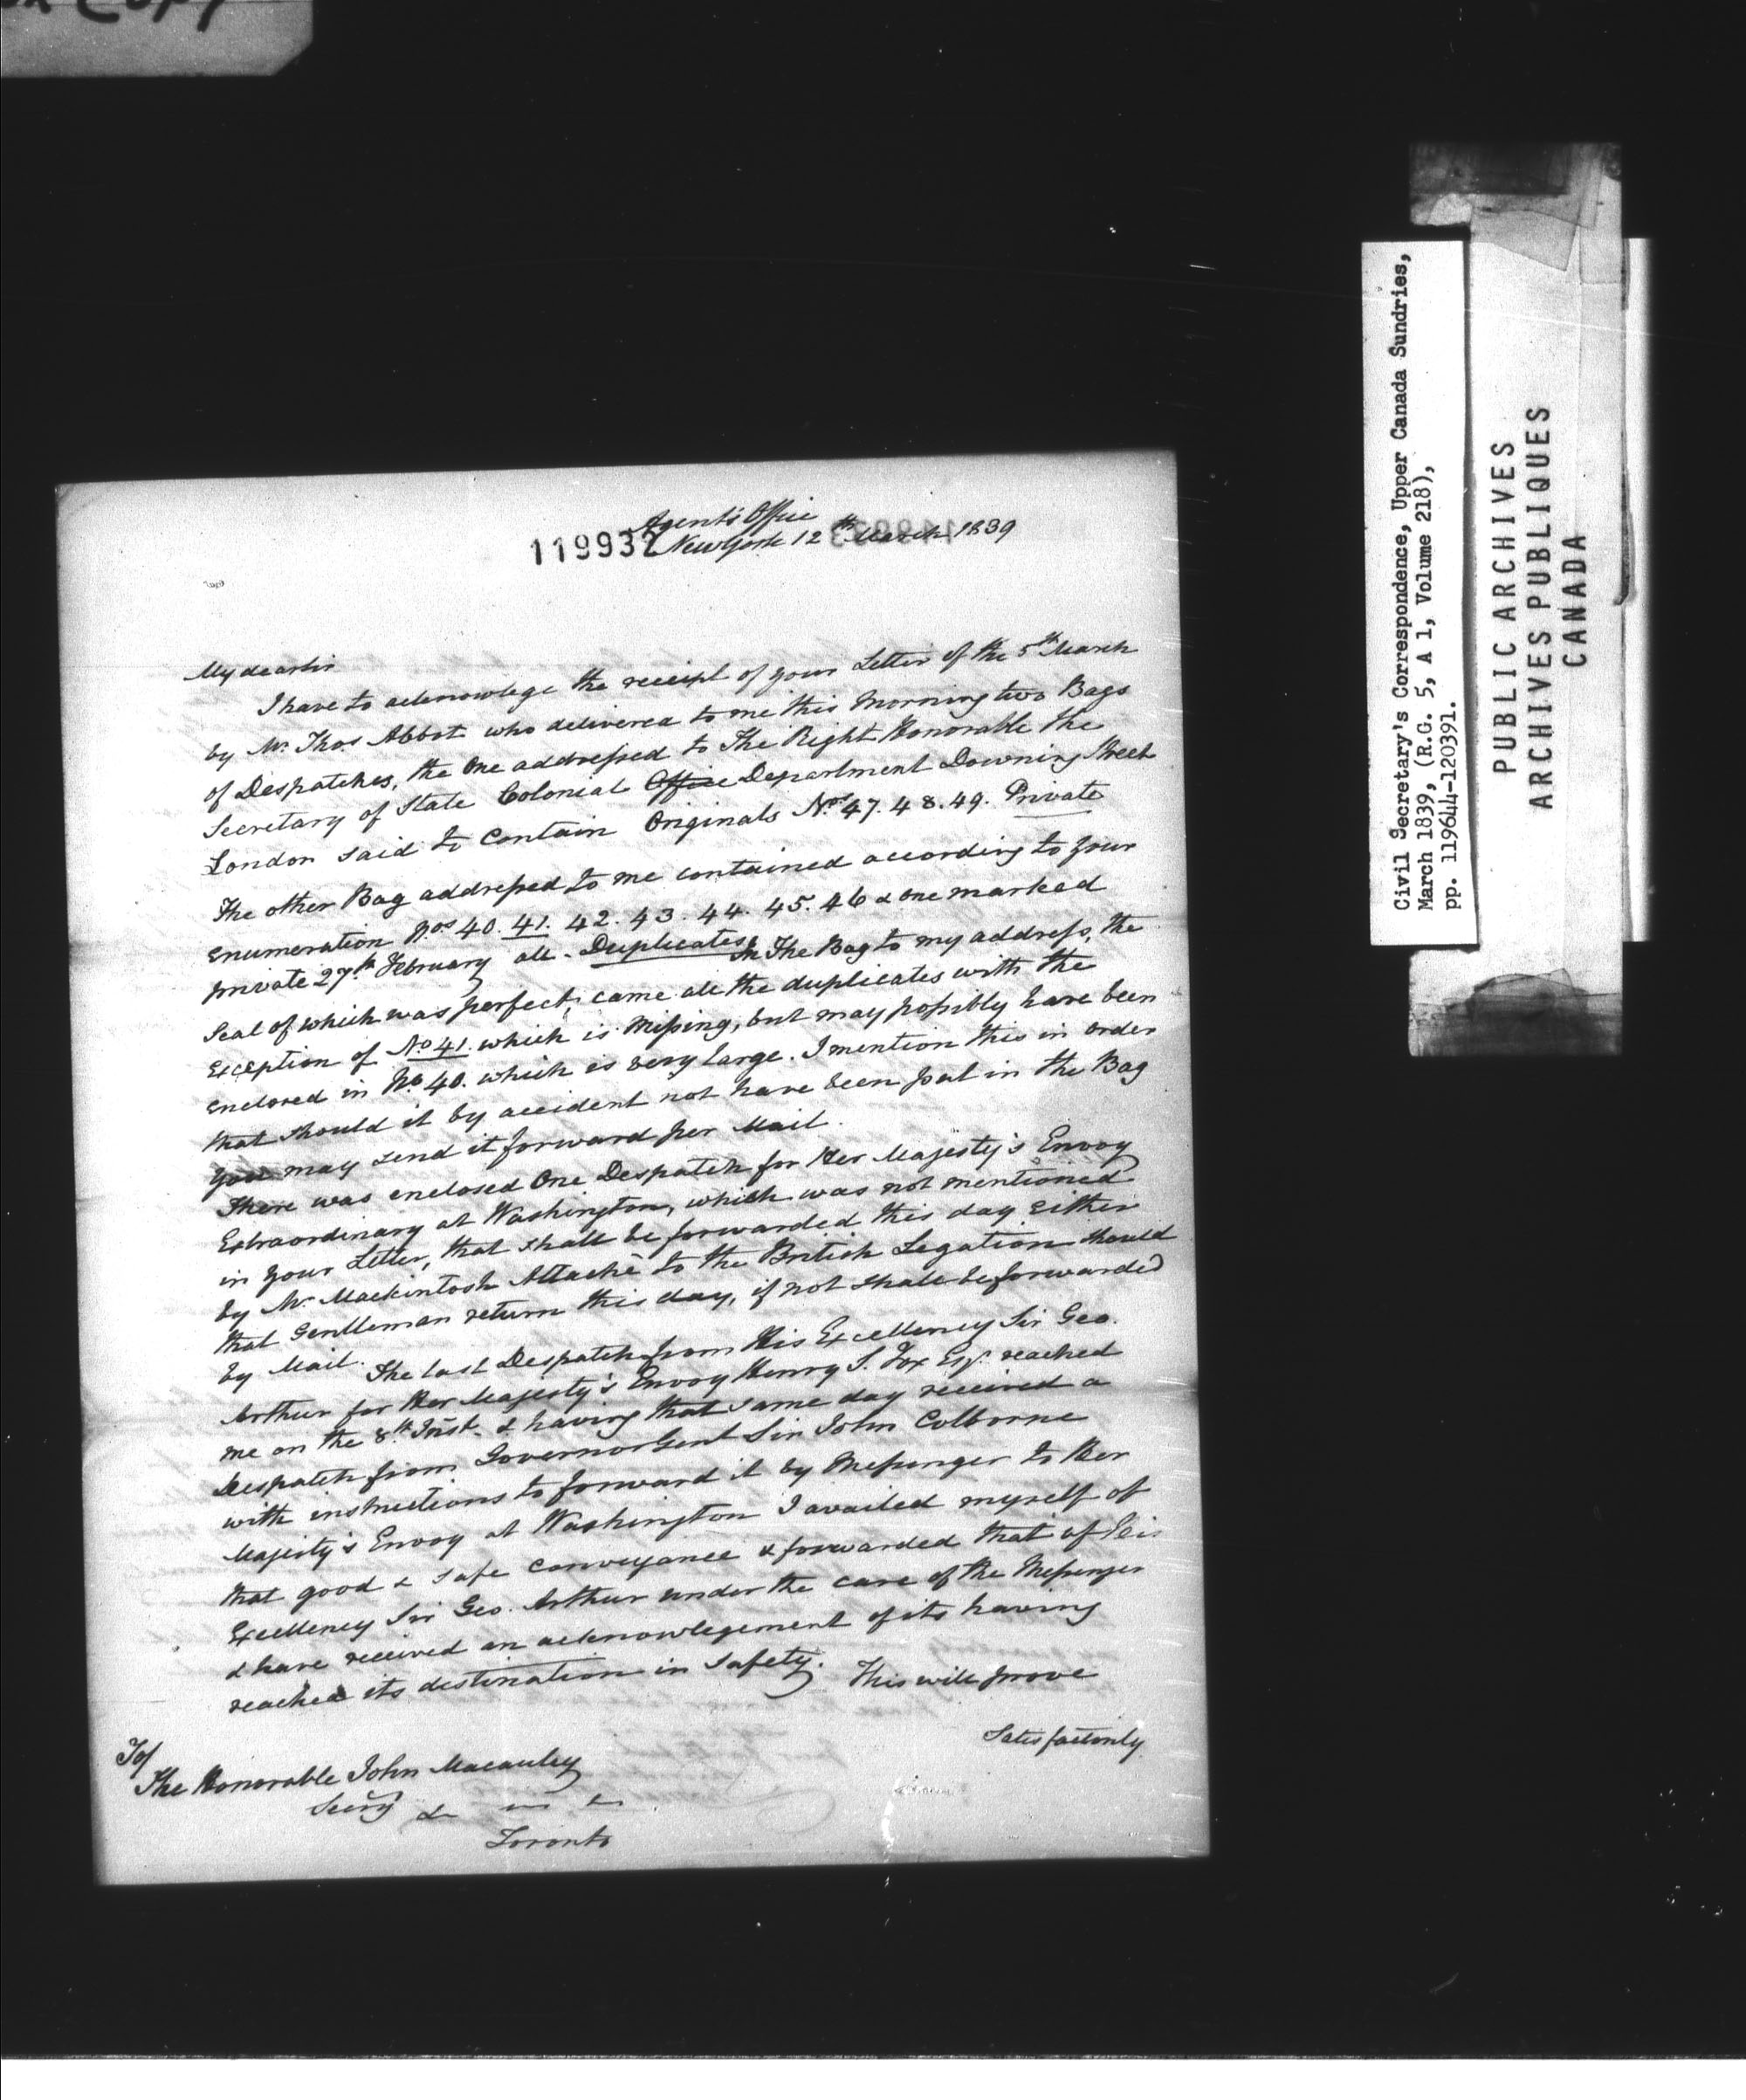 Copy
Agents Office
119932 New York 12th March 1839
My dear Sir
I have to acknowlege the receipt of your Letter of the 5th March
by Mr. Thos Abbot who delivered to me this morning two Bags
of Despatches, the One addressed to The Right Honorable the
Secretary of State Colonial Office Department Downing Street
London said to contain Originals Nos. 47. 48. 49. Private
The other Bag addressed to me contained according to your
enumeration Nos 40. 41. 42. 43. 44. 45. 46 & one marked
private 27th February all Duplicates. In The Bag to my address, the
Seal of which was perfect, came all the duplicates with the
exception of No 41. which is missing, but may possibly have been
enclosed in No 40. which is very large. I mention this in order
that should it by accident not have been put in the Bag
you may send it forward per Mail.
There was enclosed One Despatch for Her Majesty's Envoy
Extraordinary at Washington, which was not mentioned
in your Letter, that shall be forwarded this day either
by Mr. Mackintosh Attaché to the British Legation should
that Gentleman return this day, if not shall be forwarded
by Mail. The last Despatch from His Excellency Sir Geo.
Arthur for Her Majesty's Envoy Henry S. Fox Esqr. reached
me on the 8th Inst. & having that same day received a
Despatch from Governor Genl Sir John Colborne
with instructions to forward it by Messenger to Her
Majesty's Envoy at Washington I availed myself of
that good & safe conveyance & forwarded that of His
Excellency Sir Geo. Arthur under the care of the Messenger
& have received an acknowlegement of its having
reached its destination in safety. This will prove
Satisfactorily
To/
The Honorable John Macauley
Secry &
Toronto
Civil Secretary's Correspondence, Upper Canada Sundries,
March 1839, (R.G. 5, A 1, Volume 218),
pp. 119644-120391.
PUBLIC ARCHIVES
ARCHIVES PUBLIQUES
CANADA